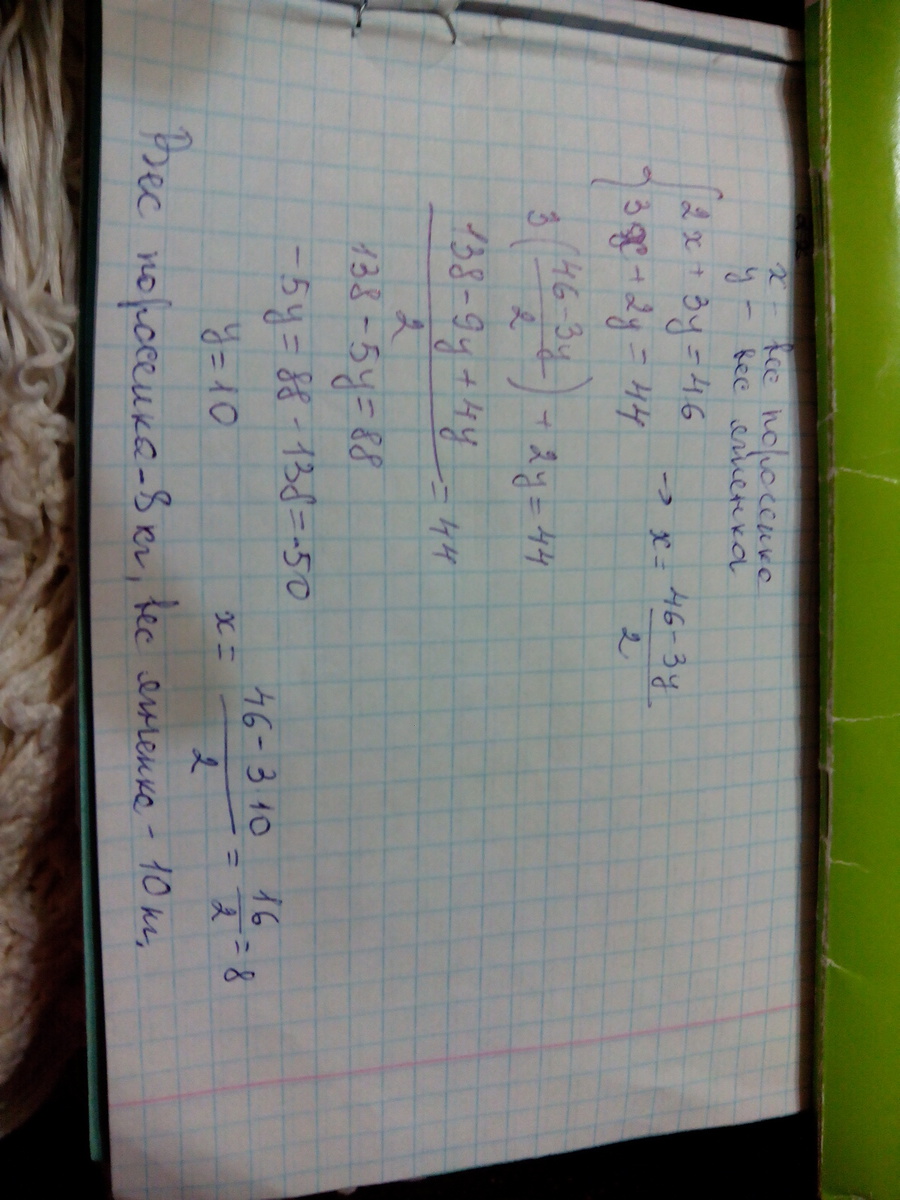 x - вес поросенка
y - вес ягненка
{ 2x + 3y = 46 → x = (46 - 3y)/2
3x + 2y = 44
3 ((46 - 3y)/2) + 2y = 44
(138 - 9y + 4y)/2 = 44
138 - 5y = 88
-5y = 88 - 138 = -50
y = 10 x = (46 - 3 10)/2 = 16/2 = 8
Вес поросенка - 8 кг, вес ягненка - 10 кг,